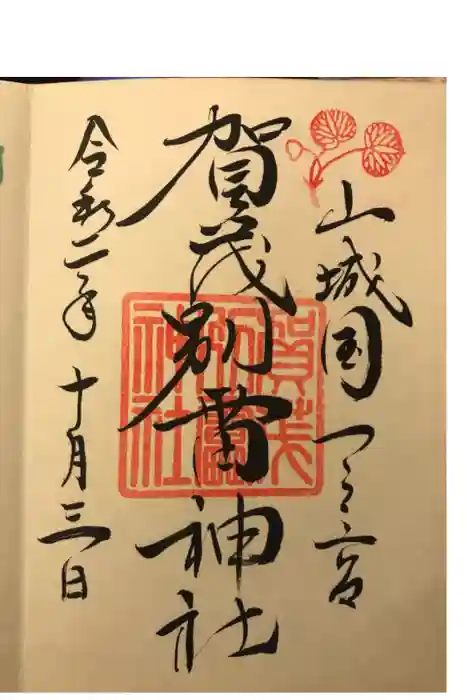 山城国一之宮
賀茂別雷神社
令和二年十月三日
賀茂別雷神社